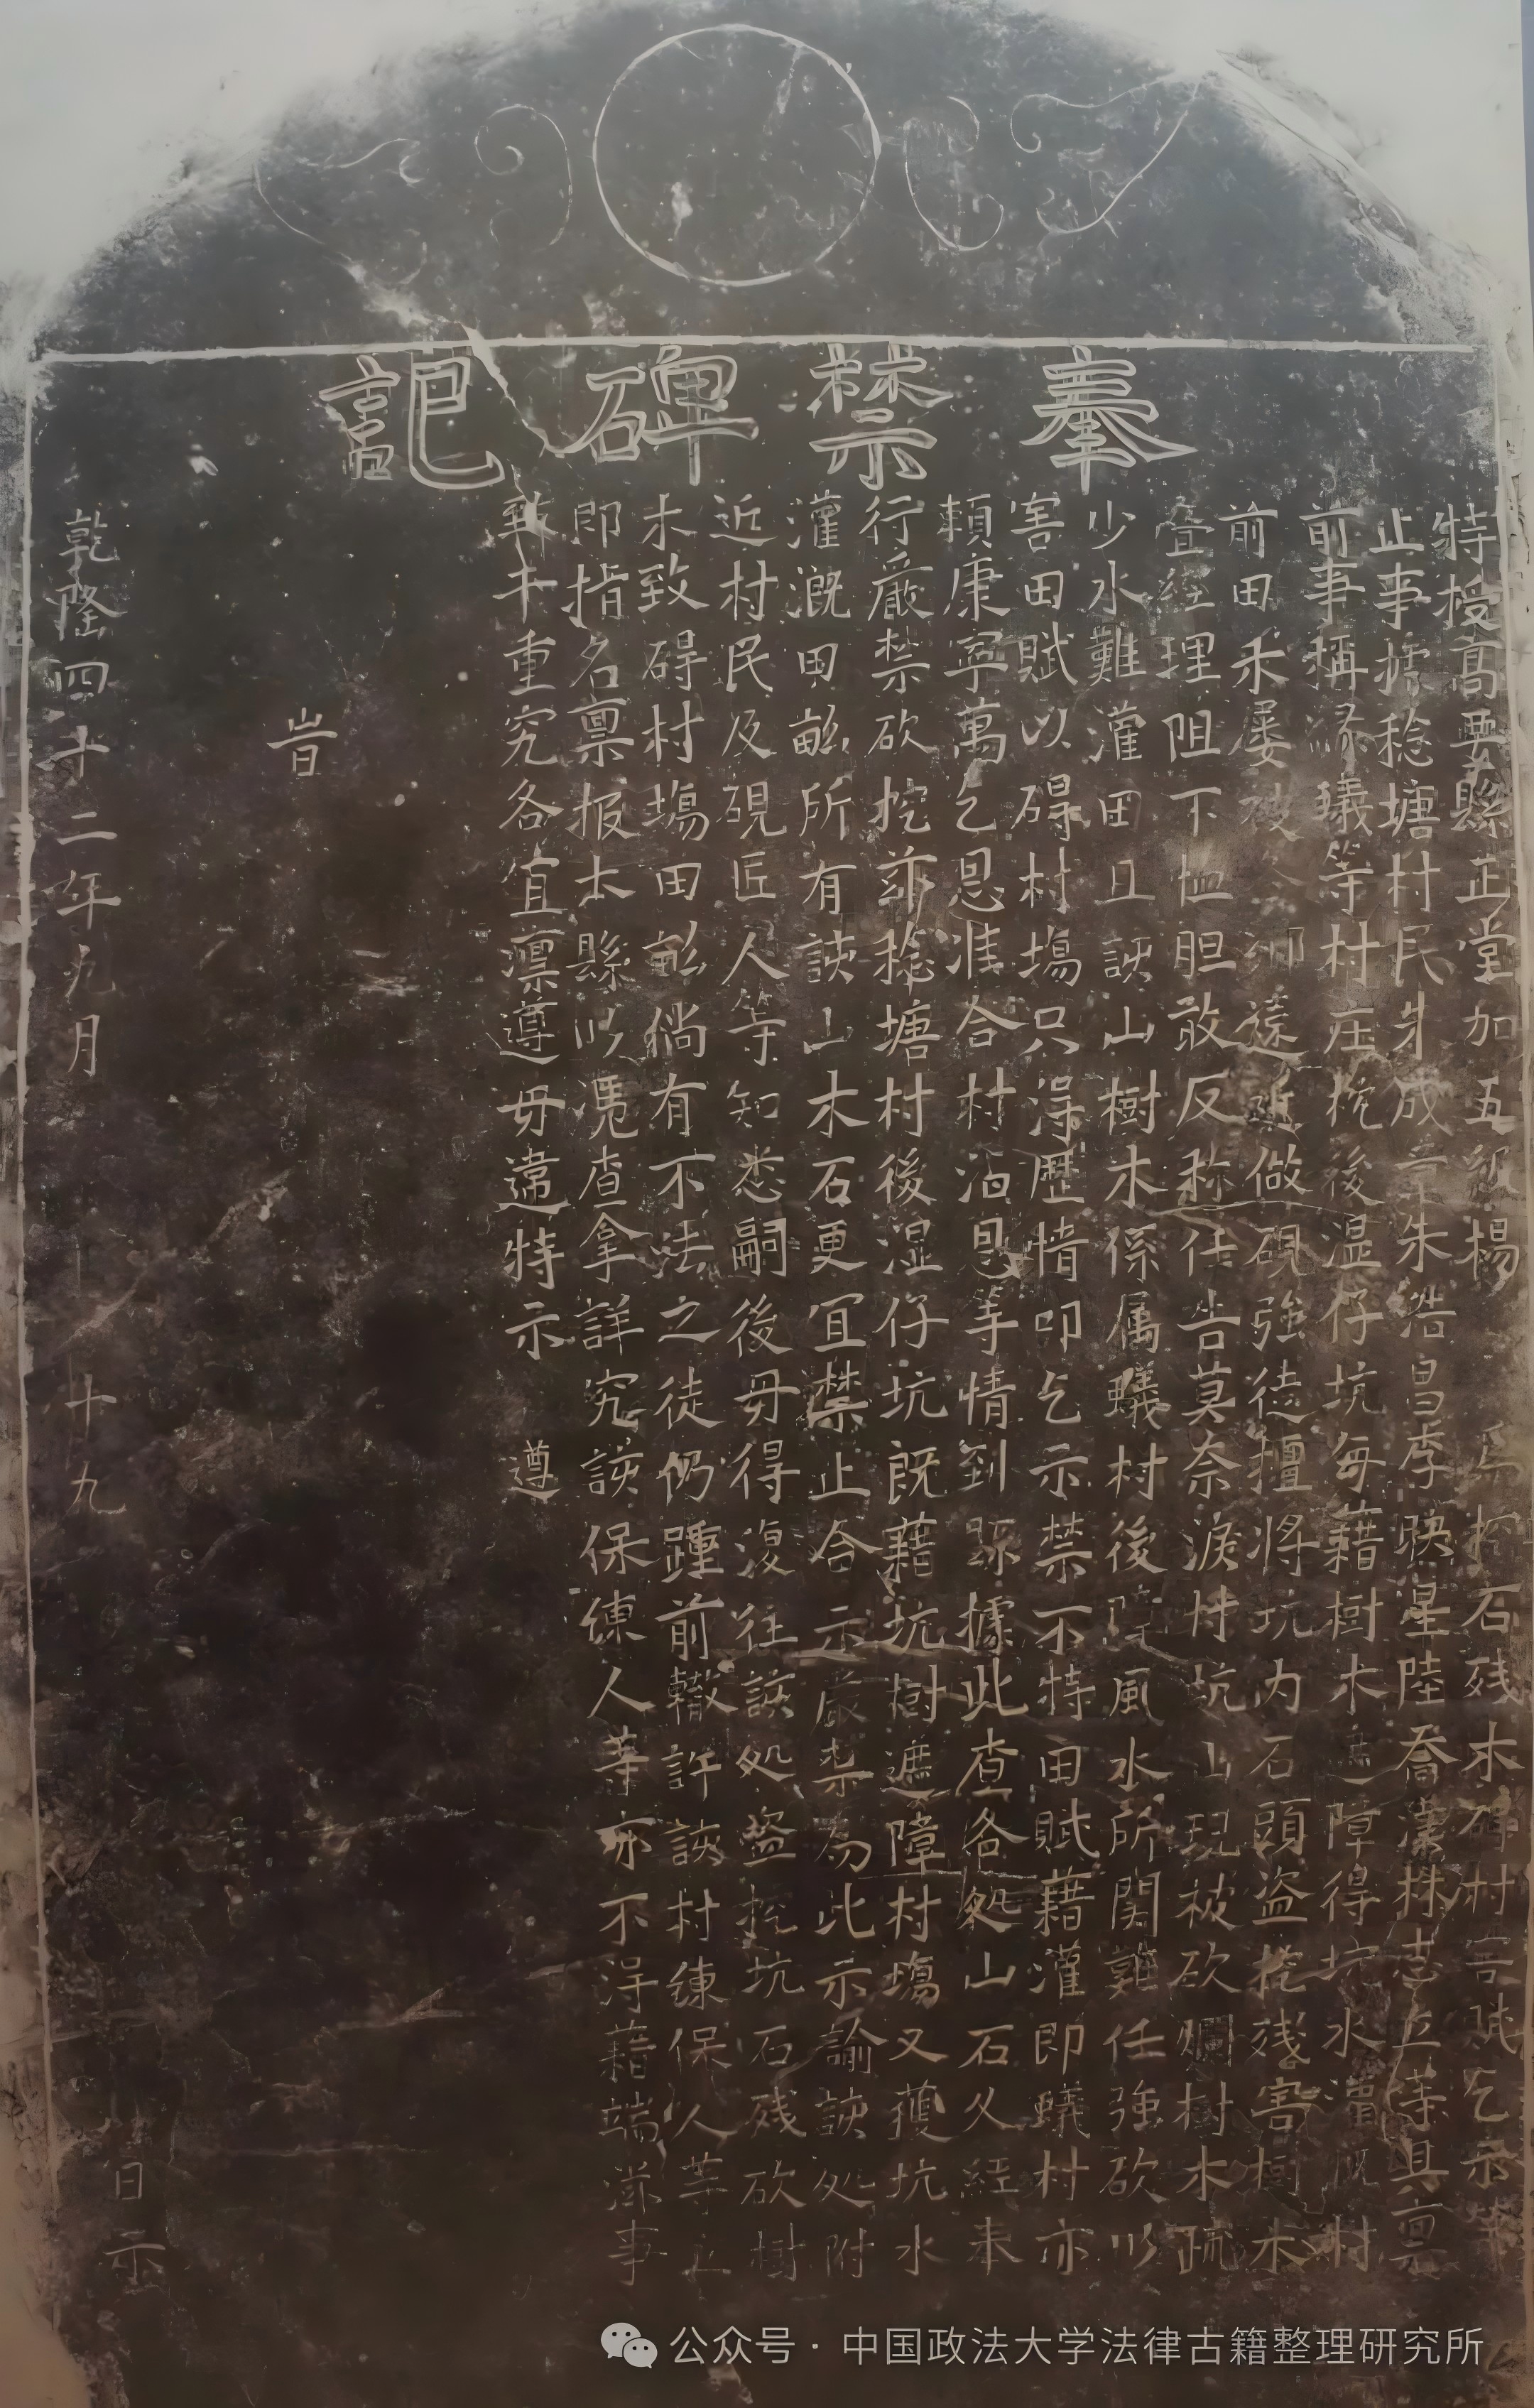 奉禁碑記
特授高要縣正堂加五級楊 為挖石残木碍村害賦乞示禁
止事據稔塘村民朱成 朱浩昌李映星陸喬漢 志立等具禀
前事稱 蟻等村庄枕後湿仔坑每藉樹木遮障得坑水灌溉村
前田禾屡被 鄉遠近做硯強徒擅將坑内石頭盗挖残害樹木
叠经理阻下恤胆敢反称任告莫奈 坑山現被砍爛樹木疏
少水難灌田且該山樹木係属蟻村後 風水所関難任強砍以
害田賦以碍村塲只淂歷情叩乞示禁不特田賦藉灌即蟻村亦
頼康寧萬乞恩准合村沾恩等情到 據此查各処山石久經奉
行厳禁砍挖 稔塘村後湿仔坑既藉坑樹遮障村塲又獲坑水
灌溉田畝所有該山木石更宜禁止合示嚴禁為此示諭該处附
近村民及硯匠人等知悉嗣後毋得復往該処盗挖坑石残砍樹
木致碍村塲田畝倘有不法之徒仍踵前轍許該村練保人等立
即指名禀报本縣以凴查拿詳究該保練人等亦不淂藉端滋事
致干重究各宜凛遵毋違特示 遵
旹
乾隆四十二年九月 十九 日示
公众号·中国政法大学法律古籍整理研究所